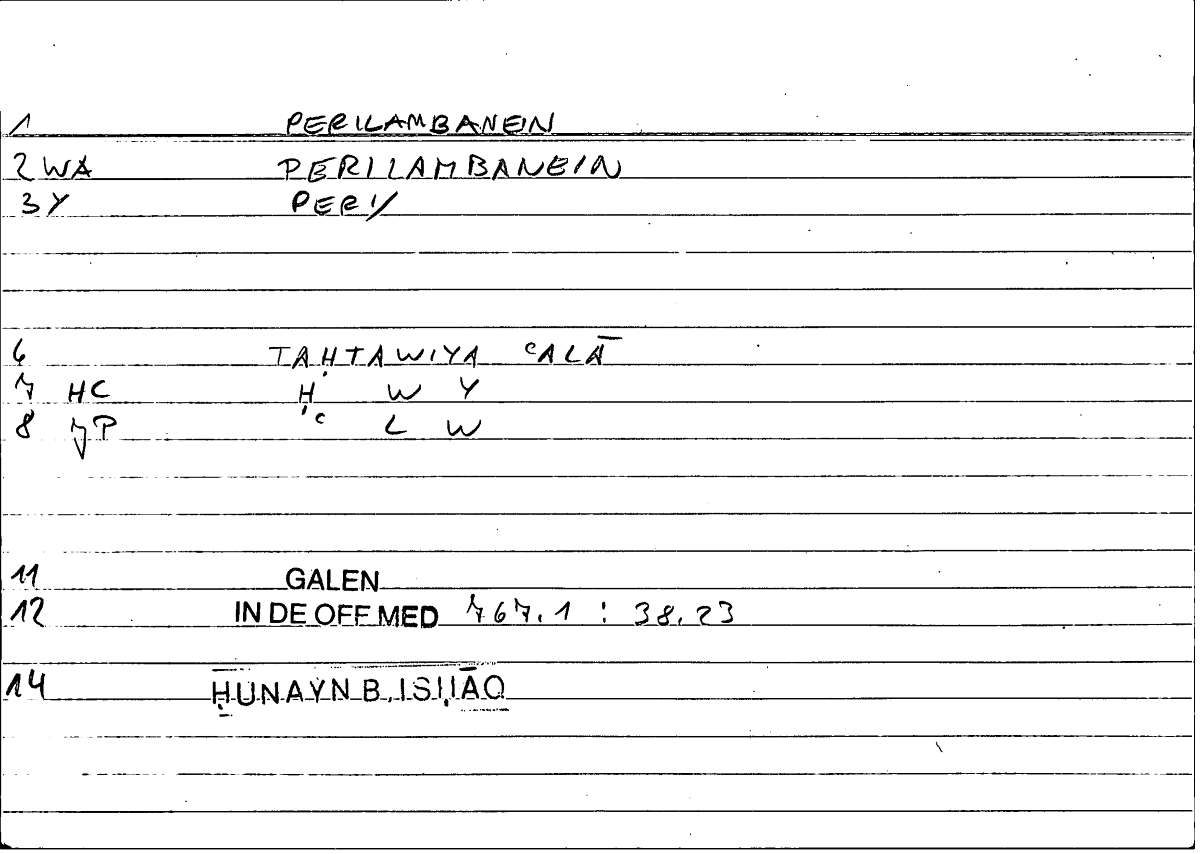 1 PERILAMBANEIN
2 WA PERILAMBANEIN
3 Y PERI/
6 TAḤTAWIYA ᶜALĀ
7 HC Ḥ W Y
8 7P ᶜ L W
11 GALEN
12 IN DE OFF MED 767.1 : 38.23
14 ḤUNAYN B. ISḤĀQ